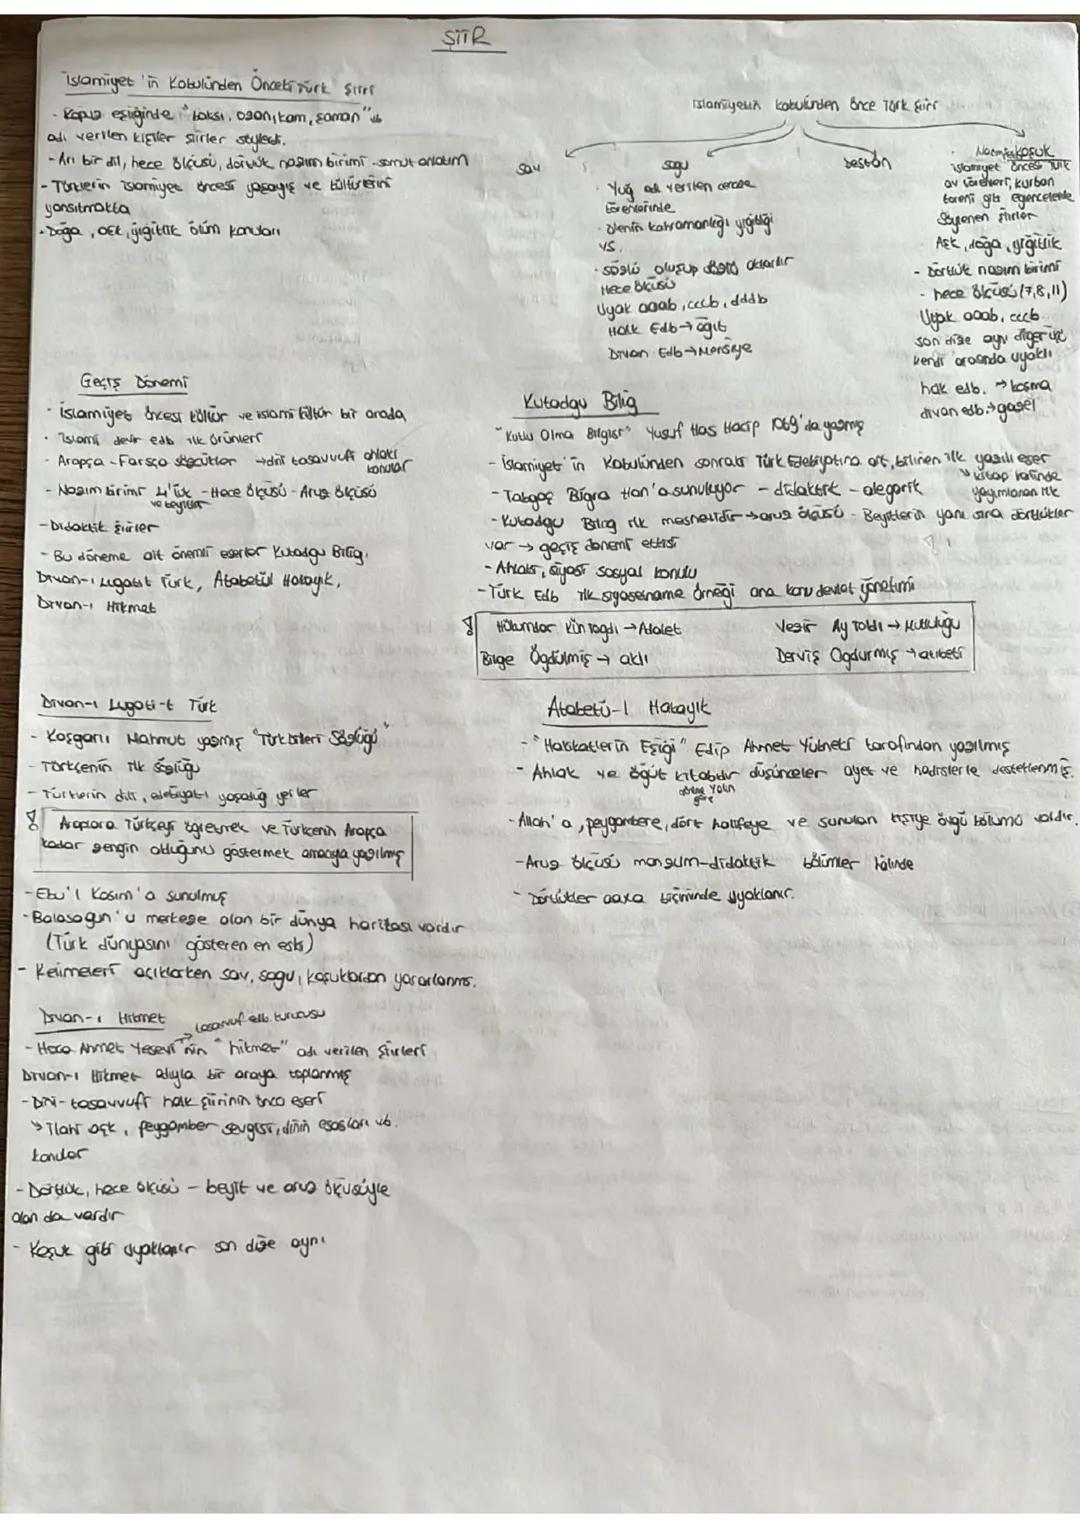 ŞİİR
İslamiyet'in Kabulünden Önceki Türk Şiiri
- Kopuz eşliğinde "baksı, ozan, kam, şaman" vb
adı verilen kişiler şiirler söyledi.
- Arı bir dil, hece ölçüsü, dörtlük nazım birimi - somut anlatım
- Türklerin İslamiyet öncesi yaşayış ve kültürlerini
yansıtmakta
- Doğa, aşk, yiğitlik ölüm konuları
İslamiyetin kabulünden Önce Türk Şiiri
Sav
sagu
· Yuğ adı verilen cenaze
törenlerinde
· ölenin kahramanlığı yiğitliği
vs.
· sözlü oluşup aktarılır
Hece ölçüsü
Uyak aaab, cccb, dddb
Halk Edb → ağıt
Divan Edb → Mersiye
destan
koşuk
İslamiyet öncesi Türk
av törenleri, kurban
töreni gibi eğlencelerde
Söylenen şiirler
Aşk, doğa, yiğitlik
- Dörtlük nazım birimi
- hece ölçüsü (7,8,11)
Uyak aaab, cccb
son dize aynı diğer üç
kendi arasında uyaklı
halk edb. → koşma
divan edb. → gazel
Geçiş Dönemi
· İslamiyet öncesi kültür ve islami kültür bir arada
· İslami devir edb ilk ürünleri
- Arapça - Farsça sözcükler → dini tasavvufi ahlaki
konular
- Nazım birimi 4'lük - Hece ölçüsü - Aruz ölçüsü
ve beyitler
- Didaktik şiirler
- Bu döneme ait önemli eserler Kutadgu Bilig,
Divan-ı Lugatit Türk, Atabetül Hakayık,
Divan-ı Hikmet
Kutadgu Bilig
"Kutlu Olma Bilgisi" Yusuf Has Hacip 1069'da yazmış
- İslamiyet'in Kabulünden sonraki Türk Edebiyatına ait, bilinen ilk yazılı eser
kitap halinde
yayımlanan ilk
- Tabgaç Buğra Han'a sunuluyor - didaktik - alegorik
- Kutadgu Bilig ilk mesnevidir → aruz ölçüsü - Beyitlerin yanı sıra dörtlükler
var → geçiş dönemi etkisi
- Ahlaki, siyasi sosyal konulu
- Türk Edb ilk siyasetname örneği ana konu devlet yönetimi
Hükümdar Kün Togdı → Adalet
Vezir Ay Toldı → Mutluluğu
Bilge Ögdülmiş → aklı
Derviş Odgurmış → akibeti
Divan-ı Lugati-t Türk
- Kaşgarlı Mahmut yazmış "Türk Dilleri Sözlüğü"
- Türkçenin ilk sözlüğü
- Türklerin dili, edebiyatı yaşadığı yerler
Araplara Türkçeyi öğretmek ve Türkçenin Arapça
kadar zengin olduğunu göstermek amacıyla yazılmış
- Ebu'l Kasım'a sunulmuş
- Balasagun'u merkeze alan bir dünya haritası vardır
(Türk dünyasını gösteren en eski)
- Kelimeleri açıklarken sav, sagu, koşuklardan yararlanmış.
Atabetü-l Hakayık
- "Hakikatlerin Eşiği" Edip Ahmet Yükneki tarafından yazılmış
- Ahlak ve öğüt kitabıdır düşünceler ayet ve hadislerle desteklenmiş.
- Allah'a, peygambere, dört halifeye ve sunulan kişiye övgü bölümü vardır.
- Aruz ölçüsü manzum-didaktik bölümler halinde
- Dörtlükler aaxa biçiminde uyaklanır.
Divan-ı Hikmet
tasavvuf edb. kurucusu
- Hoca Ahmet Yesevi'nin "hikmet" adı verilen şiirleri
Divan-ı Hikmet adıyla bir araya toplanmış
- Dini-tasavvufi halk şiirinin önce eseri
İlahi aşk, peygamber sevgisi, dinin esasları vb.
konular
- Dörtlük, hece ölçüsü - beyit ve aruz ölçüsüyle
olan da vardır
- Koşuk gibi uyaklanır son dize aynı